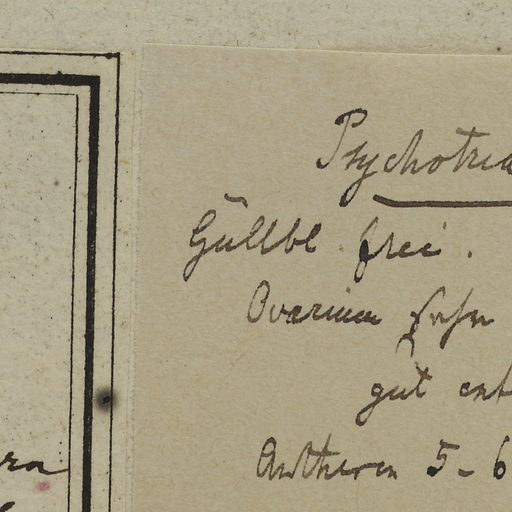 Psychotria
Hüllbl. frei.
Ovarium sehr
gut ent
Antheren 5-6
ra